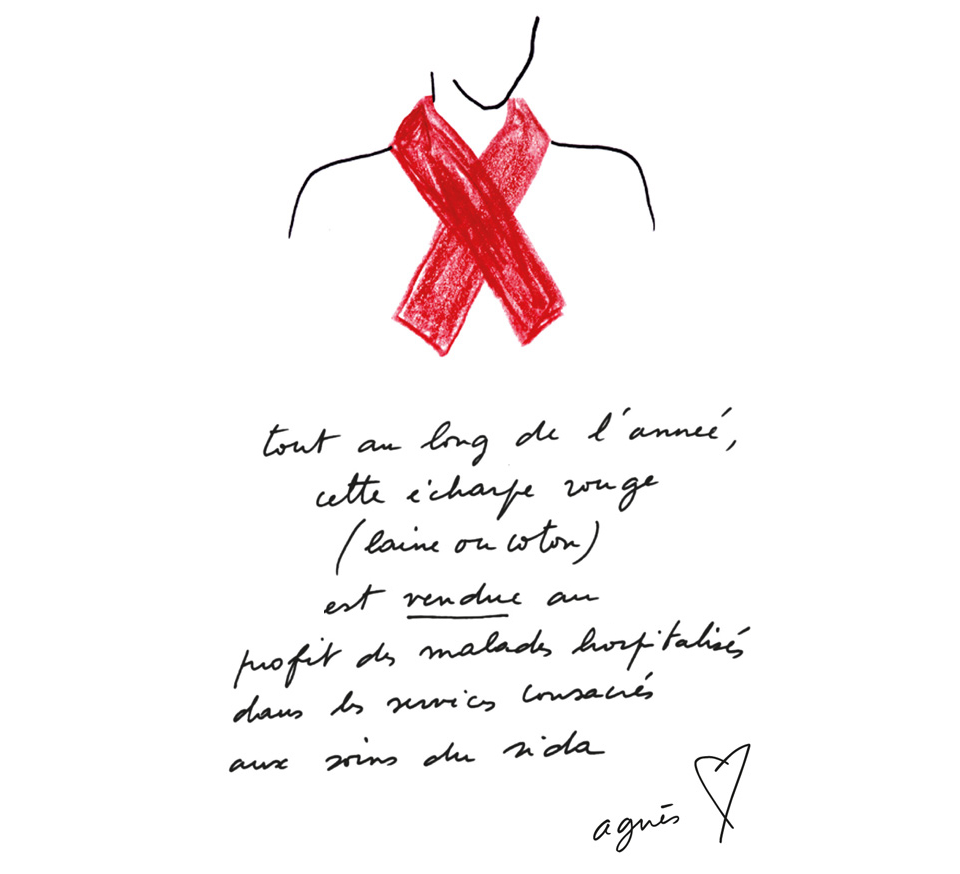 tout au long de l'année,
cette écharpe rouge
(laine ou coton)
est vendue au
profit des malades hospitalisés
dans les services consacrés
aux soins du sida
agnès